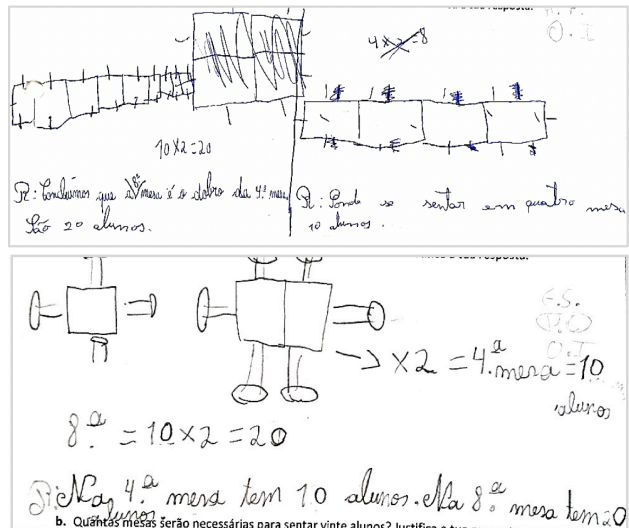 4x2=8
10x2=20
R: Concluímos que a 8ª mesa é o dobro da 4ª mesa
São 20 alunos.
R: Pode se sentar em quatro mesa
10 alunos.
→ x2 = 4.ª mesa = 10
alunos
8.ª = 10x2 = 20
R: Na 4.ª mesa tem 10 alunos. Na 8.ª mesa tem 20
alunos.
b. Quantas mesas serão necessárias para sentar vinte alunos? Justifica a tua